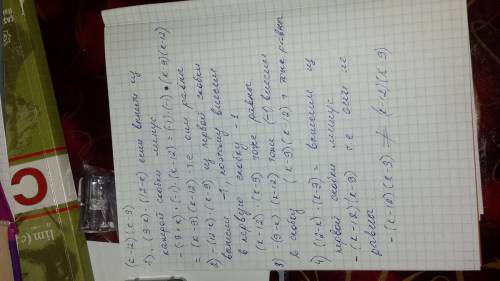 (x-12)(x-3)
1) -(9-x)·(12-x) если вынести из
каждой скобки минус
-(9+x)·(-1)·(x-12) = (-)·(-)·(x-9)(x-12)
= (x-9)(x-12) т.е они равны
2) -(12-x)·(x-9) из первой скобки
вынесем -1, поэтому внесем
в первую скобку -1
(x-12)·(x-9) тоже равны
3) -(9-x)·(x-12) тоже (-1) внесем
в скобку (x-9)(x-12) тоже равны
4) (12-x)·(x-9) = вынесем из
первой скобки минус
-(x-12)(x-9) т.е они не
равны
-(x-12)(x-9) ≠ (x-12)(x-9)
C
lim